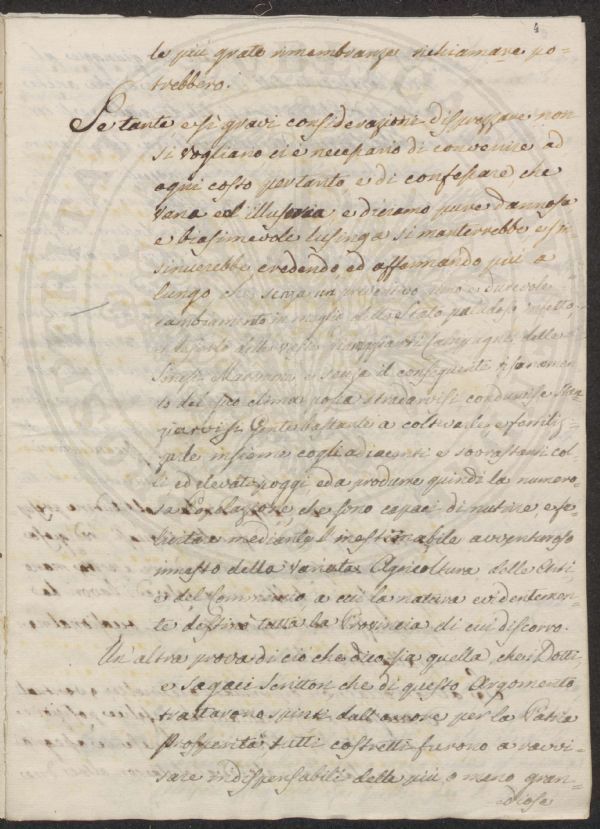 4
le più grate rimembranze richiamare po=
trebbero.
Se tante e sì gravi considerazioni disprezzare non
si vogliano ci è necessario di convenire ad
ogni costo pertanto e di confessare, che
vana ed illusoria e diciamo pure dannosa
e biasimevole lusinga si manterrebbe e s'in
sinuerebbe credendo ed affermando più a
lungo che senza un preventivo vero e durevole
cambiamento in meglio dello stato paludoso infetto,
e delle vaste Campagne della
Maremma e senza il conseguente risaname
to del suo clima possa condurvisi e sta
ziarvisi Gente bastante a coltivarle e fertiliz=
zarle insieme cogli adiacenti e sovrastanti col=
li ed elevati poggi ed a produrre quindi la numero
sa Popolazione, che sono capaci di nutrire e fe=
licitare mediante l'inestimabile avventuroso
innesto della variata Agricoltura delle Arti,
e del Commercio, a cui la natura evidentemen=
te destina tutta la Provincia di cui discorro.
Un'altra prova di ciò che dico sia quella, che i Dotti,
e sagaci scrittori che di questo Argomento
trattarono spinti dall'amore per la Patria
Prosperità tutti costretti furono a ravvi=
sare indispensabili delle più o meno gran=
=diose